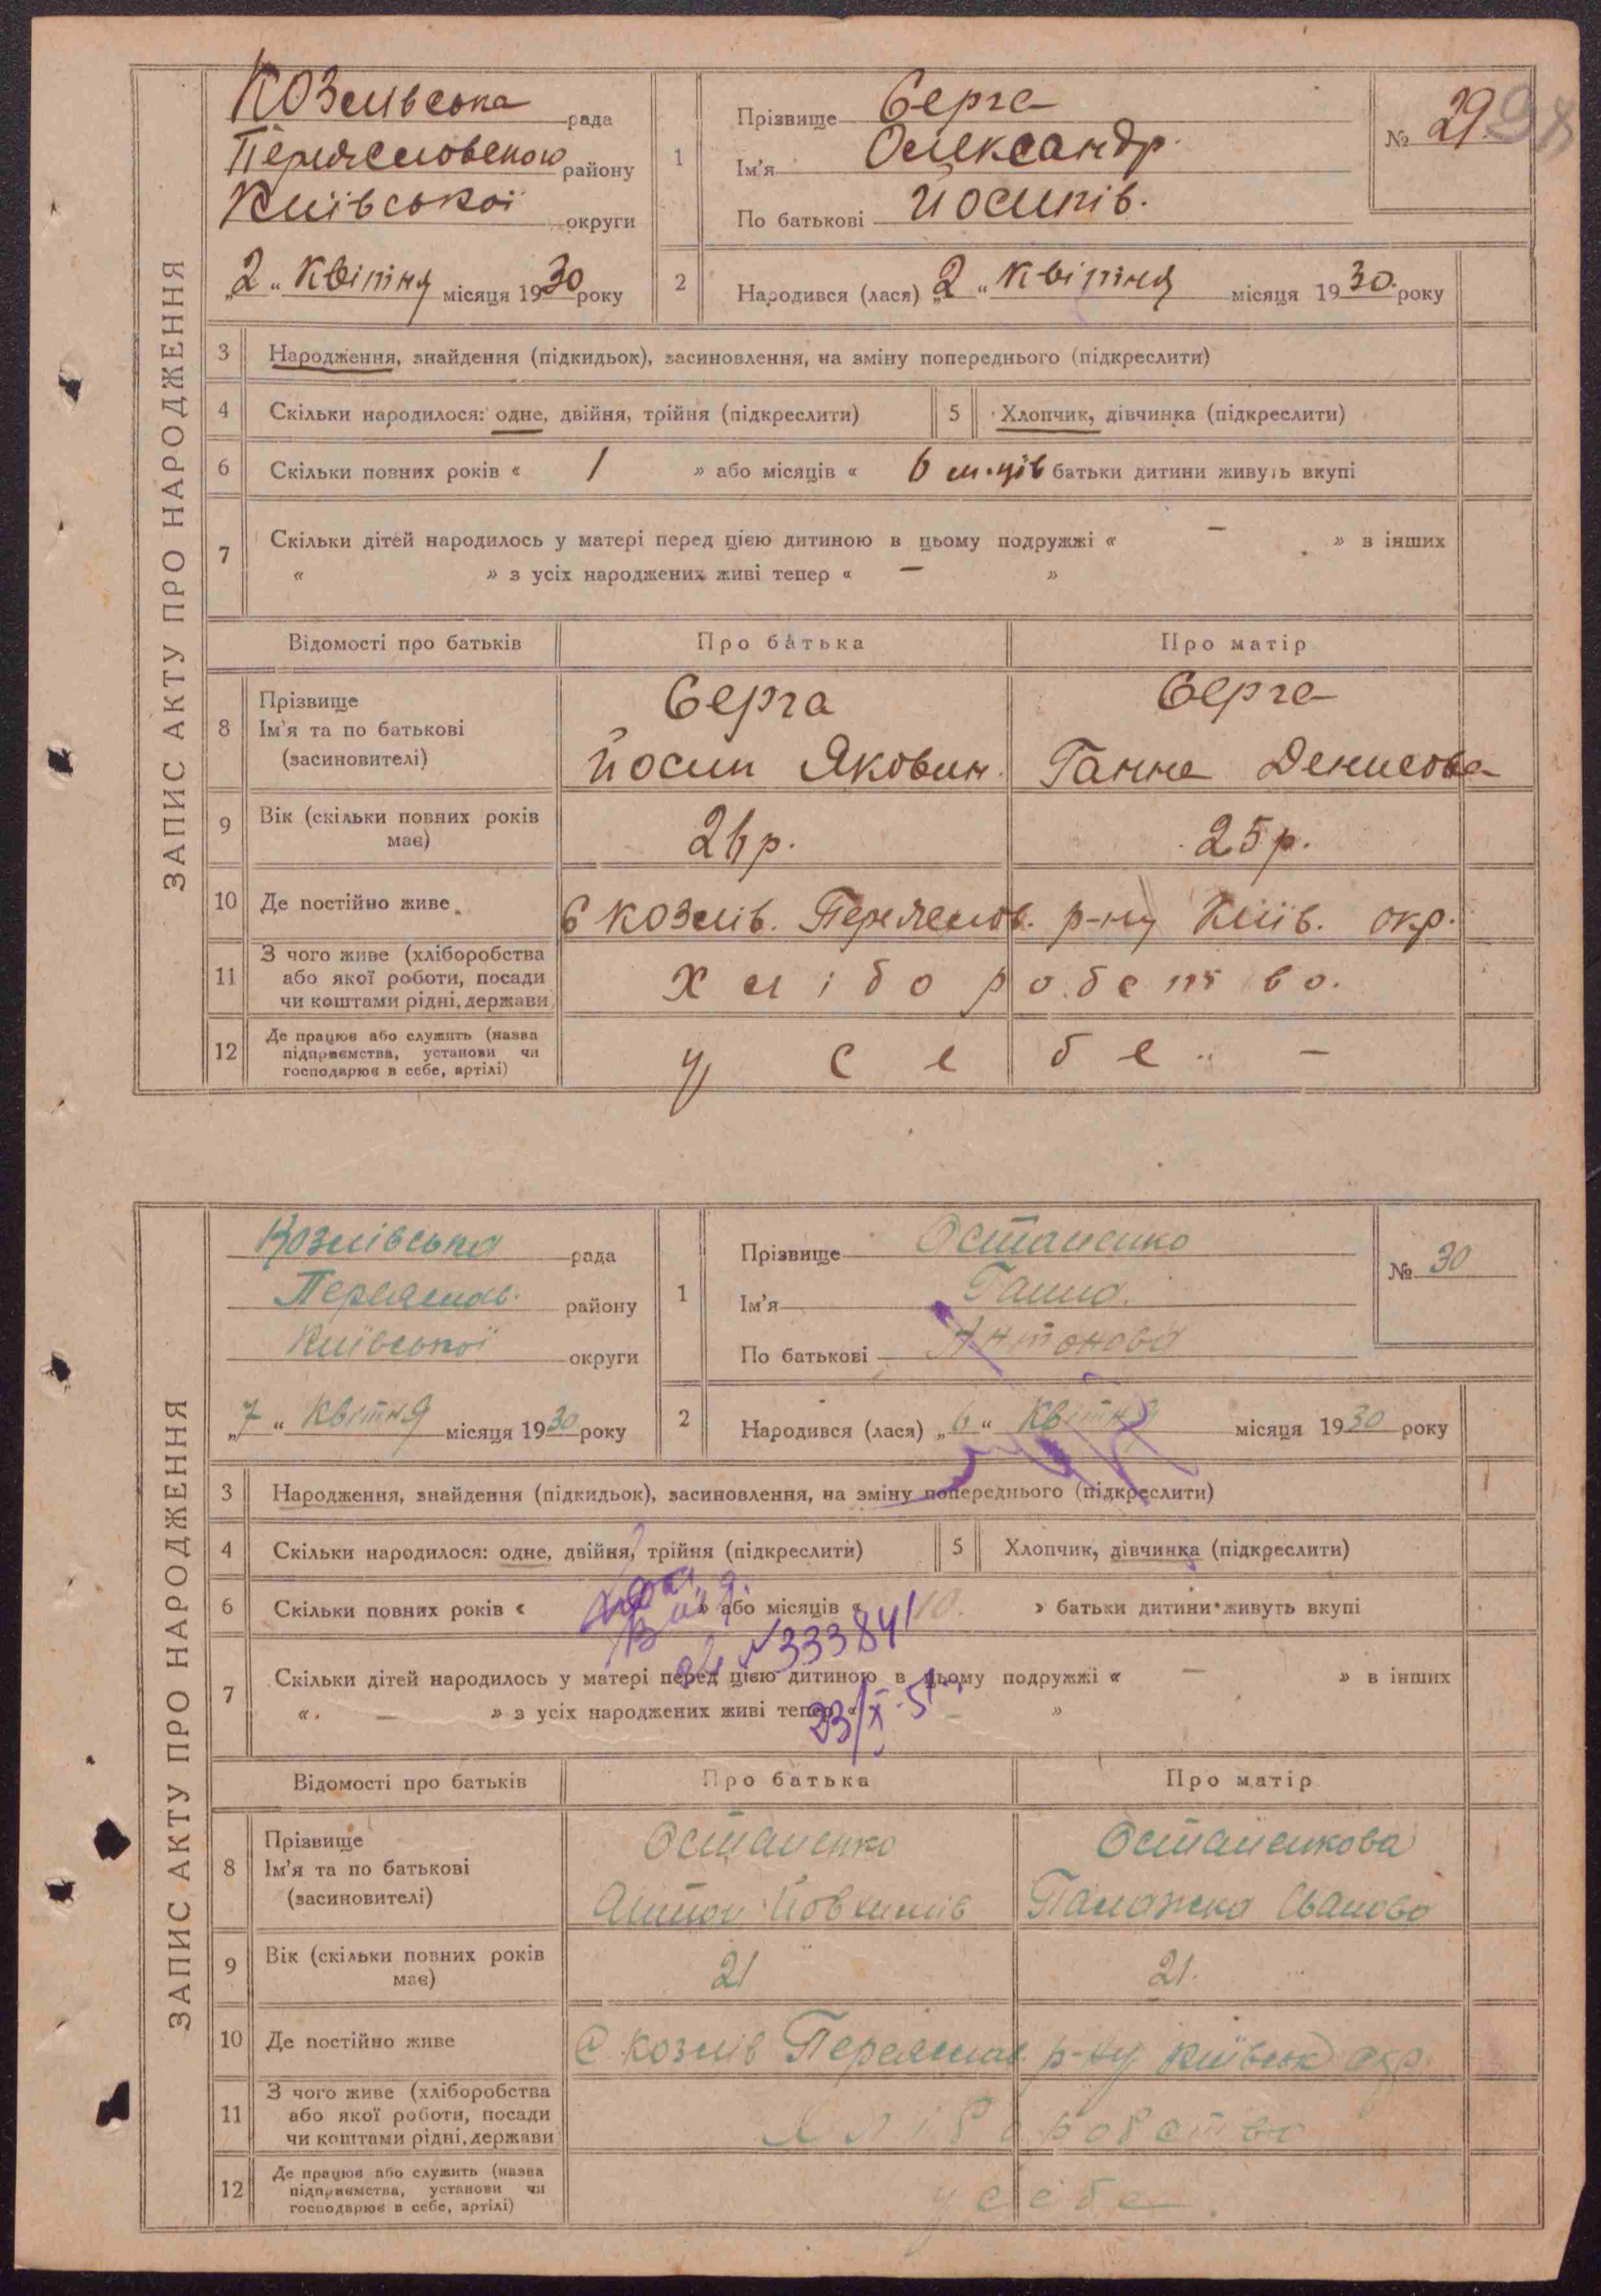 ЗАПИС АКТУ ПРО НАРОДЖЕННЯ
Козлівська рада
району
Київської округи
„2“ Квітня місяця 1930 року
1
Прізвище Серга
Ім'я Олександр
По батькові Йосипів.
№ 29.
98
2
Народився (лася) „2“ Квітня місяця 1930 року
3 Народження, знайдення (підкидьок), засиновлення, на зміну попереднього (підкреслити)
4 Скільки народилося: одне, двійня, трійня (підкреслити)
5 Хлопчик, дівчинка (підкреслити)
6 Скільки повних років « 1 » або місяців « 6 м-ців батьки дитини живуть вкупі
7 Скільки дітей народилось у матері перед цією дитиною в цьому подружжі « — » в інших
« » з усіх народжених живі тепер « — »
Відомості про батьків Про батька Про матір
8 Прізвище
Ім'я та по батькові
(засиновителі)
Серга
Йосип Якович.
Серга
Ганна Денисова
9 Вік (скільки повних років має)
26 р.
25 р.
10 Де постійно живе
С Козлів. Переяслов. р-ну Київ. окр.
11 З чого живе (хліборобства
або якої роботи, посади
чи коштами рідні, держави
хліборобство.
12 Де працює або служить (назва
підприємства, установи чи
господарює в себе, артілі)
у себе —
ЗАПИС АКТУ ПРО НАРОДЖЕННЯ
Козлівська рада
Переяслав. району
Київської округи
„7“ Квітня місяця 1930 року
1
Прізвище Остапенко
Ім'я Ганна.
По батькові Антонова
№ 30
2
Народився (лася) „6“ Квітня місяця 1930 року
3 Народження, знайдення (підкидьок), засиновлення, на зміну попереднього (підкреслити)
4 Скільки народилося: одне, двійня, трійня (підкреслити)
5 Хлопчик, дівчинка (підкреслити)
6 Скільки повних років « » або місяців « 10. » батьки дитини живуть вкупі
№ 333841
7 Скільки дітей народилось у матері перед цією дитиною в цьому подружжі « — » в інших
« — » з усіх народжених живі тепер « — »
23/X
Відомості про батьків Про батька Про матір
8 Прізвище
Ім'я та по батькові
(засиновителі)
Остапенко
Антон
Остапенкова
Паложка Іванова
9 Вік (скільки повних років має)
21
21.
10 Де постійно живе
С. Козлів Переяслав. р-ну Київськ окр.
11 З чого живе (хліборобства
або якої роботи, посади
чи коштами рідні, держави
Хліборобство
12 Де працює або служить (назва
підприємства, установи чи
господарює в себе, артілі)
у себе